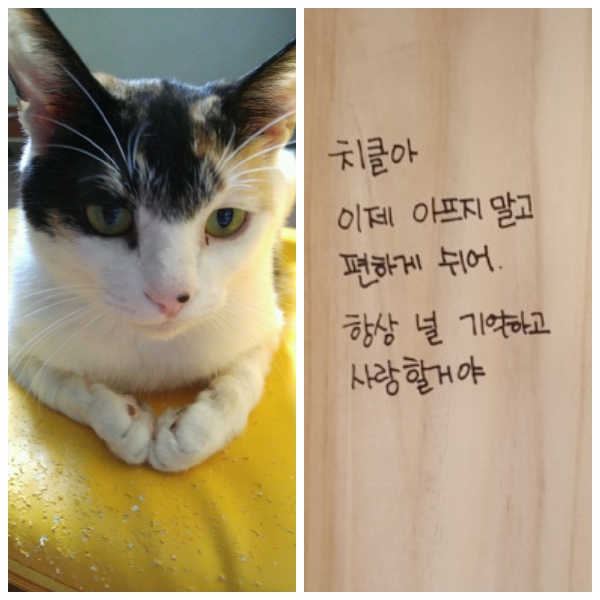 치클아
이제 아프지 말고
편하게 쉬어.
항상 널 기억하고
사랑할거야